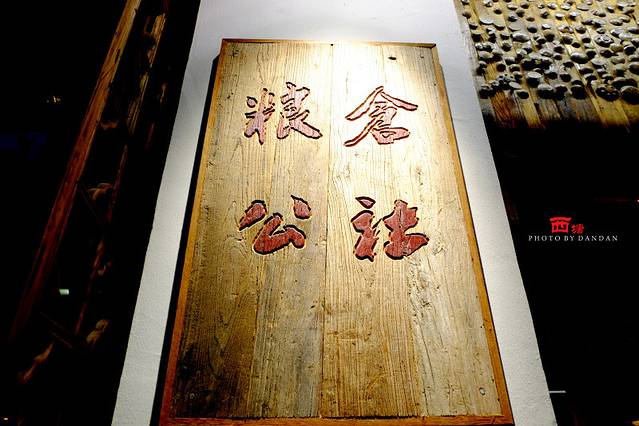 粮倉
公社
西塘
PHOTO BY DANDAN